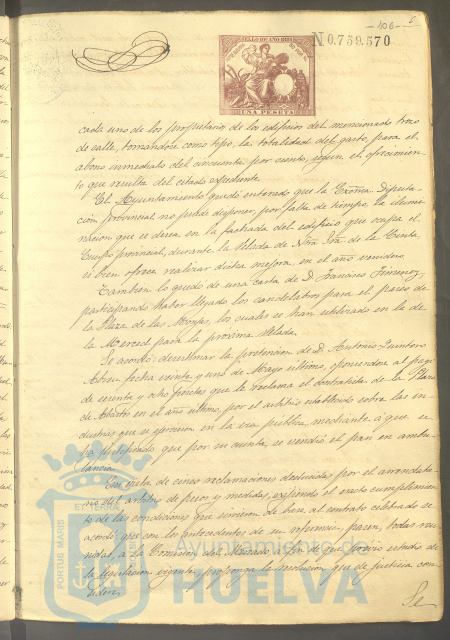 406
SELLO DE AÑO 1888
N 0.759.570
UNA PESETA
cada uno de los propietarios de los edificios del mencionado trozo
de calle, tomándose como tipo, la totalidad del gasto, para el
abono inmediato del cincuenta por ciento, segun el ofrecimien-
to que resulta del citado expediente.
El Ayuntamiento quedó enterado que la Excma. Diputa-
cion provincial no puede disponer, por falta de tiempo, la ilumi-
nacion que se desea en la fachada del edificio que ocupa el
Cuerpo provincial, durante la Velada de Ntra. Sra. de la Cinta
si bien ofrece realizar dicha mejora, en el año venidero.
Tambien lo quedó de una carta de D. Francisco Jimenez,
participando haber llegado los candelabros para el paseo de
la Plaza de las Monjas, los cuales se han utilizado en la de
la Merced para la próxima Velada.
Se acordó: desestimar la pretension de D. Antonio Quintero
fecha veinte y uno de Mayo último, oponiendose al pago
de y ocho pesetas que le reclama el contratista de la Plaza
de Abastos en el año último, por el arbitrio establecido sobre las in-
dustrias que se ejercen en la via pública, mediante á que se
ha justificado que por su cuenta, se vendió el pan en ambu-
lancia.
En vista de cinco reclamaciones deducidas por el arrendata-
rio del arbitrio de pesos y medidas, exigiendo el exacto cumplimien-
to de las condiciones que sirvieron de base al contrato celebrado se
acordó que con los antecedentes de su referencia, pasen, todas reu-
nidas, a la Comision del Mercado á fin de que previo estudio de
la legislacion vigente proponga la resolucion que de justicia con-
sidere.
Se
PORTUS MARIS ET TERRAE
Ayuntamiento de
HUELVA